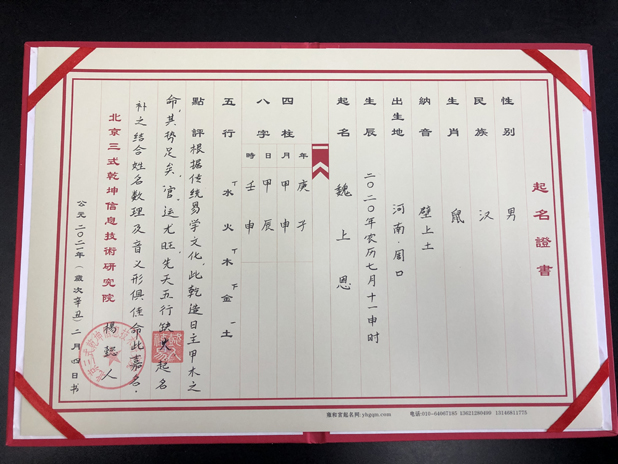 起名證書
性别 男
民族 汉
生肖 鼠
納音 壁上土
出生地 河南·周口
生辰 二〇二〇年农历七月十一申时
起名 魏上恩
四柱 年 庚子
月 甲申
八字 日 甲辰
時 壬申
五行 水 火 木 金 土
點評 根据传统易学文化,此乾造日主甲木之
命,其势足矣,官运尤旺,先天五行缺火起名
补之结合姓名数理及音义形俱佳命此嘉名.
北京三式乾坤信息技術研究院 杨 人
公元二〇二一年(歲次辛丑)二月四日书
雍和宫起名网:yhgqm.com 电话:010-64067185 13621280400 13146811775